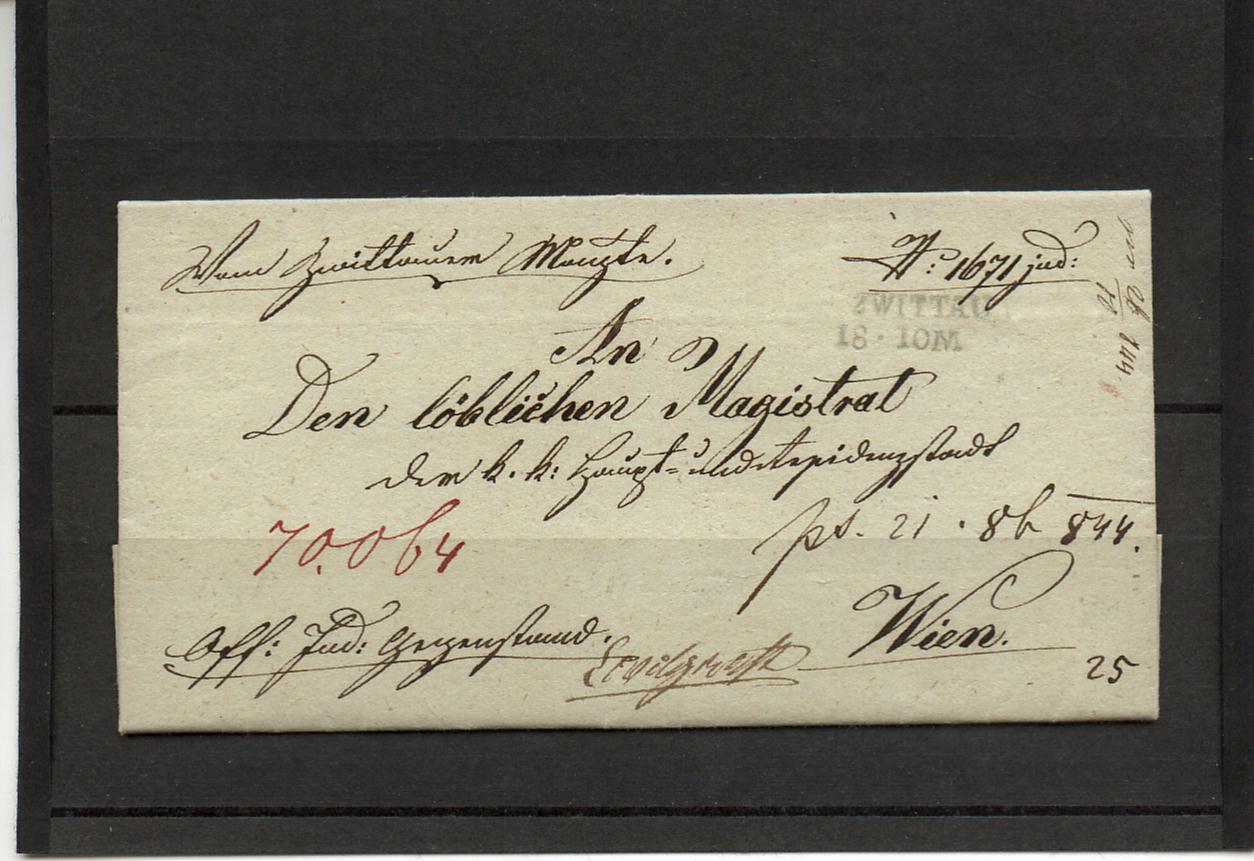 Vom Zwittauer Magste.
N: 1671 jud:
ZWITTAU
18 · IOM
An
Den löblichen Magistrat
der k. k: Haupt= und Residenzstadt
70.064
ps. 21 · 8b 844.
Wien.
Off: Jud: Gegenstand.
25